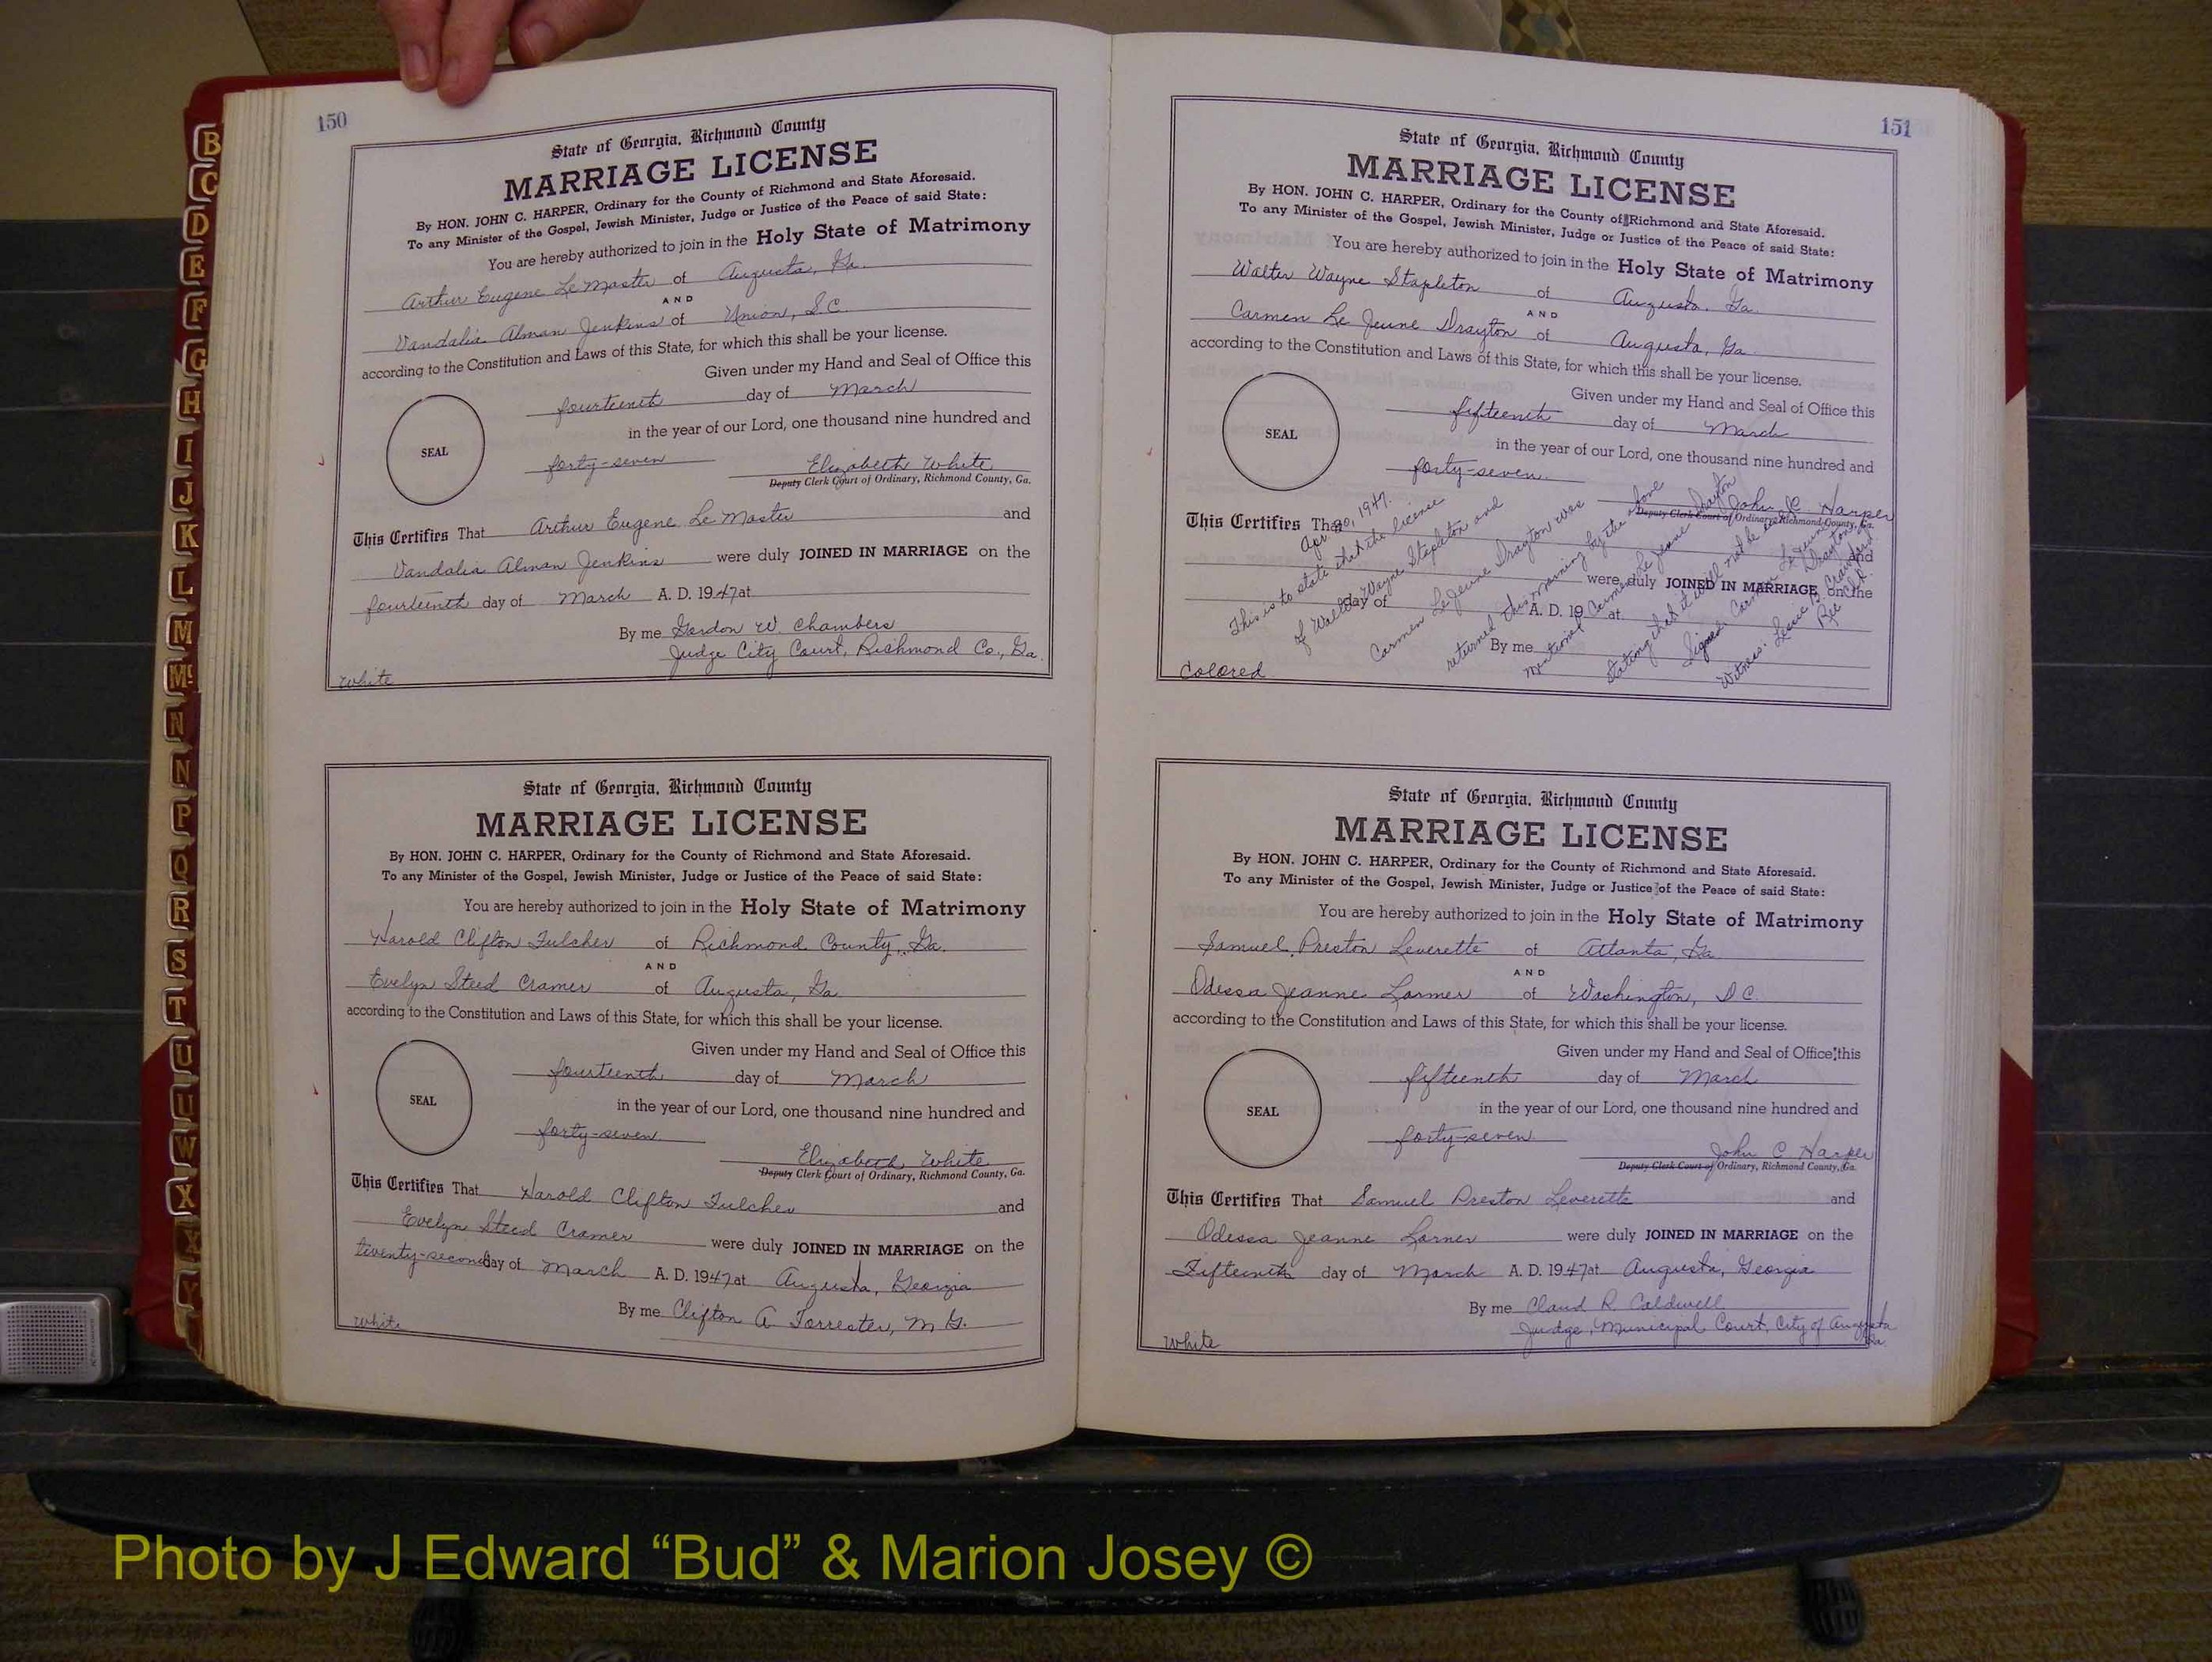 150
State of Georgia, Richmond County
MARRIAGE LICENSE
By HON. JOHN C. HARPER, Ordinary for the County of Richmond and State Aforesaid.
To any Minister of the Gospel, Jewish Minister, Judge or Justice of the Peace of said State:
You are hereby authorized to join in the Holy State of Matrimony
Arthur Eugene Le Master of Augusta, Ga.
AND
Vandalia Alman Jenkins of Union, S.C.
according to the Constitution and Laws of this State, for which this shall be your license.
Given under my Hand and Seal of Office this
fourteenth day of March
in the year of our Lord, one thousand nine hundred and
SEAL
forty-seven Elizabeth White
Deputy Clerk Court of Ordinary, Richmond County, Ga.
This Certifies That Arthur Eugene Le Master and
Vandalia Alman Jenkins were duly JOINED IN MARRIAGE on the
fourteenth day of March A. D. 1947 at
By me Gordon W. Chambers
Judge City Court, Richmond Co., Ga.
White
State of Georgia, Richmond County
MARRIAGE LICENSE
By HON. JOHN C. HARPER, Ordinary for the County of Richmond and State Aforesaid.
To any Minister of the Gospel, Jewish Minister, Judge or Justice of the Peace of said State:
You are hereby authorized to join in the Holy State of Matrimony
Harold Clifton Fulcher of Richmond County, Ga.
AND
Evelyn Steed Cramer of Augusta, Ga.
according to the Constitution and Laws of this State, for which this shall be your license.
Given under my Hand and Seal of Office this
fourteenth day of March
in the year of our Lord, one thousand nine hundred and
SEAL
forty-seven Elizabeth White
Deputy Clerk Court of Ordinary, Richmond County, Ga.
This Certifies That Harold Clifton Fulcher and
Evelyn Steed Cramer were duly JOINED IN MARRIAGE on the
twenty-second day of March A. D. 1947 at Augusta, Georgia
By me Clifton A. Forrester, M.G.
White
151
State of Georgia, Richmond County
MARRIAGE LICENSE
By HON. JOHN C. HARPER, Ordinary for the County of Richmond and State Aforesaid.
To any Minister of the Gospel, Jewish Minister, Judge or Justice of the Peace of said State:
You are hereby authorized to join in the Holy State of Matrimony
Walter Wayne Stapleton of Augusta, Ga.
AND
Carmen Le Jeune Drayton of Augusta, Ga.
according to the Constitution and Laws of this State, for which this shall be your license.
Given under my Hand and Seal of Office this
fifteenth day of March
in the year of our Lord, one thousand nine hundred and
SEAL
forty-seven John C Harper
Deputy Clerk Court of Ordinary, Richmond County, Ga.
This Certifies That
and
were duly JOINED IN MARRIAGE on the
day of A. D. 19 at
By me
Apr 20, 1947.
This is to state that the license
of Walter Wayne Stapleton and
Carmen Le Jeune Drayton was
returned this morning by the above
mentioned Carmen Le Jeune Drayton
stating that it will not be
Signed: Carmen Le Jeune Drayton
Witness: B. Crawford
Colored
State of Georgia, Richmond County
MARRIAGE LICENSE
By HON. JOHN C. HARPER, Ordinary for the County of Richmond and State Aforesaid.
To any Minister of the Gospel, Jewish Minister, Judge or Justice of the Peace of said State:
You are hereby authorized to join in the Holy State of Matrimony
Samuel Preston Leverette of Atlanta, Ga.
AND
Odessa Jeanne Larmer of Washington, D.C.
according to the Constitution and Laws of this State, for which this shall be your license.
Given under my Hand and Seal of Office this
fifteenth day of March
in the year of our Lord, one thousand nine hundred and
SEAL
forty-seven John C Harper
Deputy Clerk Court of Ordinary, Richmond County, Ga.
This Certifies That Samuel Preston Leverette and
Odessa Jeanne Larner were duly JOINED IN MARRIAGE on the
Fifteenth day of March A. D. 1947 at Augusta, Georgia
By me Claud R. Caldwell
Judge, Municipal Court, City of Augusta
Ga.
White
B
C
D
E
F
G
H
I
J
K
L
M
Mc
N
N
P
Q
R
S
T
U
U
W
X
Y
Photo by J Edward “Bud” & Marion Josey ©